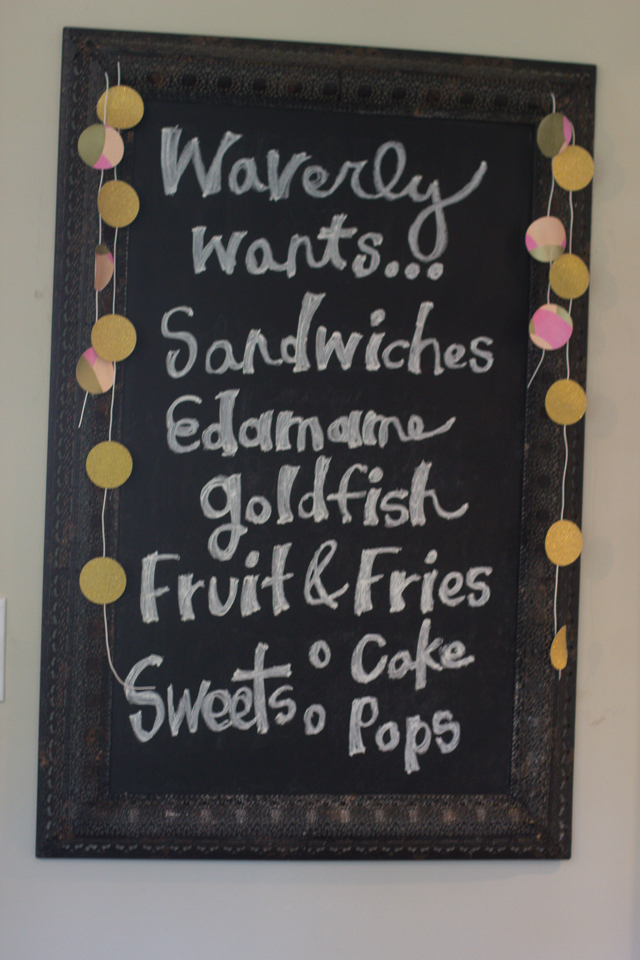 Waverly
wants...
Sandwiches
Edamame
goldfish
Fruit & Fries
Sweets o Cake
o Pops